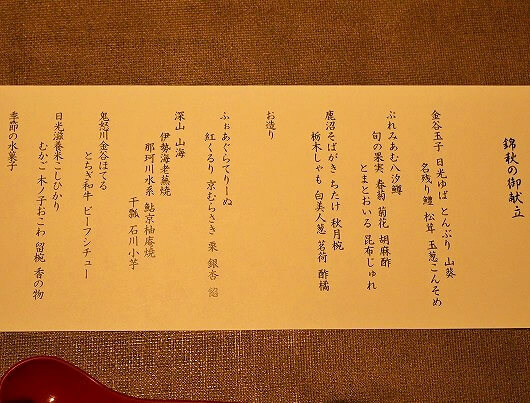 錦秋の御献立
金谷玉子 日光ゆば とんぶり 山葵
名残り鱧 松茸 玉葱こんそめ
ぷれみあむ八汐鱒
旬の果実 春菊 菊花 胡麻酢
とまとおいる 昆布じゅれ
鹿沼そばがき ちたけ 秋月椀
栃木しゃも 白美人葱 茗荷 酢橘
お造り
ふぉあぐらてりーぬ
紅くるり 京むらさき 栗 銀杏 餡
深山 山海
伊勢海老蕪焼
那珂川水系 鮎京柚庵焼
干瓢 石川小芋
鬼怒川金谷ほてる
とちぎ和牛 ビーフシチュー
日光滋養米こしひかり
むかご 木ノ子おこわ 留椀 香の物
季節の水菓子